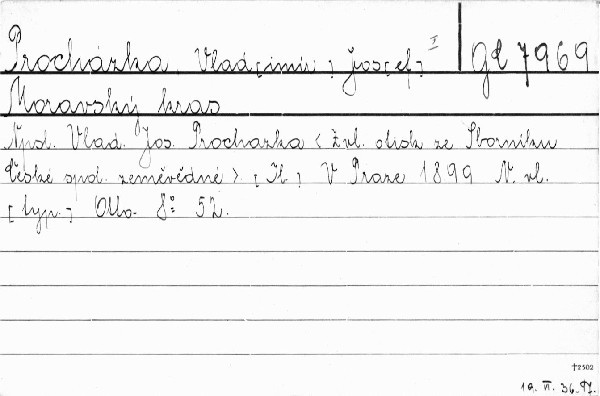 Procházka, Vlad[imír] Jos[ef] I Gd 7969
Moravský kras
Npsl. Vlad. Jos. Procházka < Zvl. otisk ze Sborníku
České spol. zeměvědné >. [Il.] V Praze 1899 N. vl.
[typ.] Otto. 8° 52.
†2502
19. VI. 36.